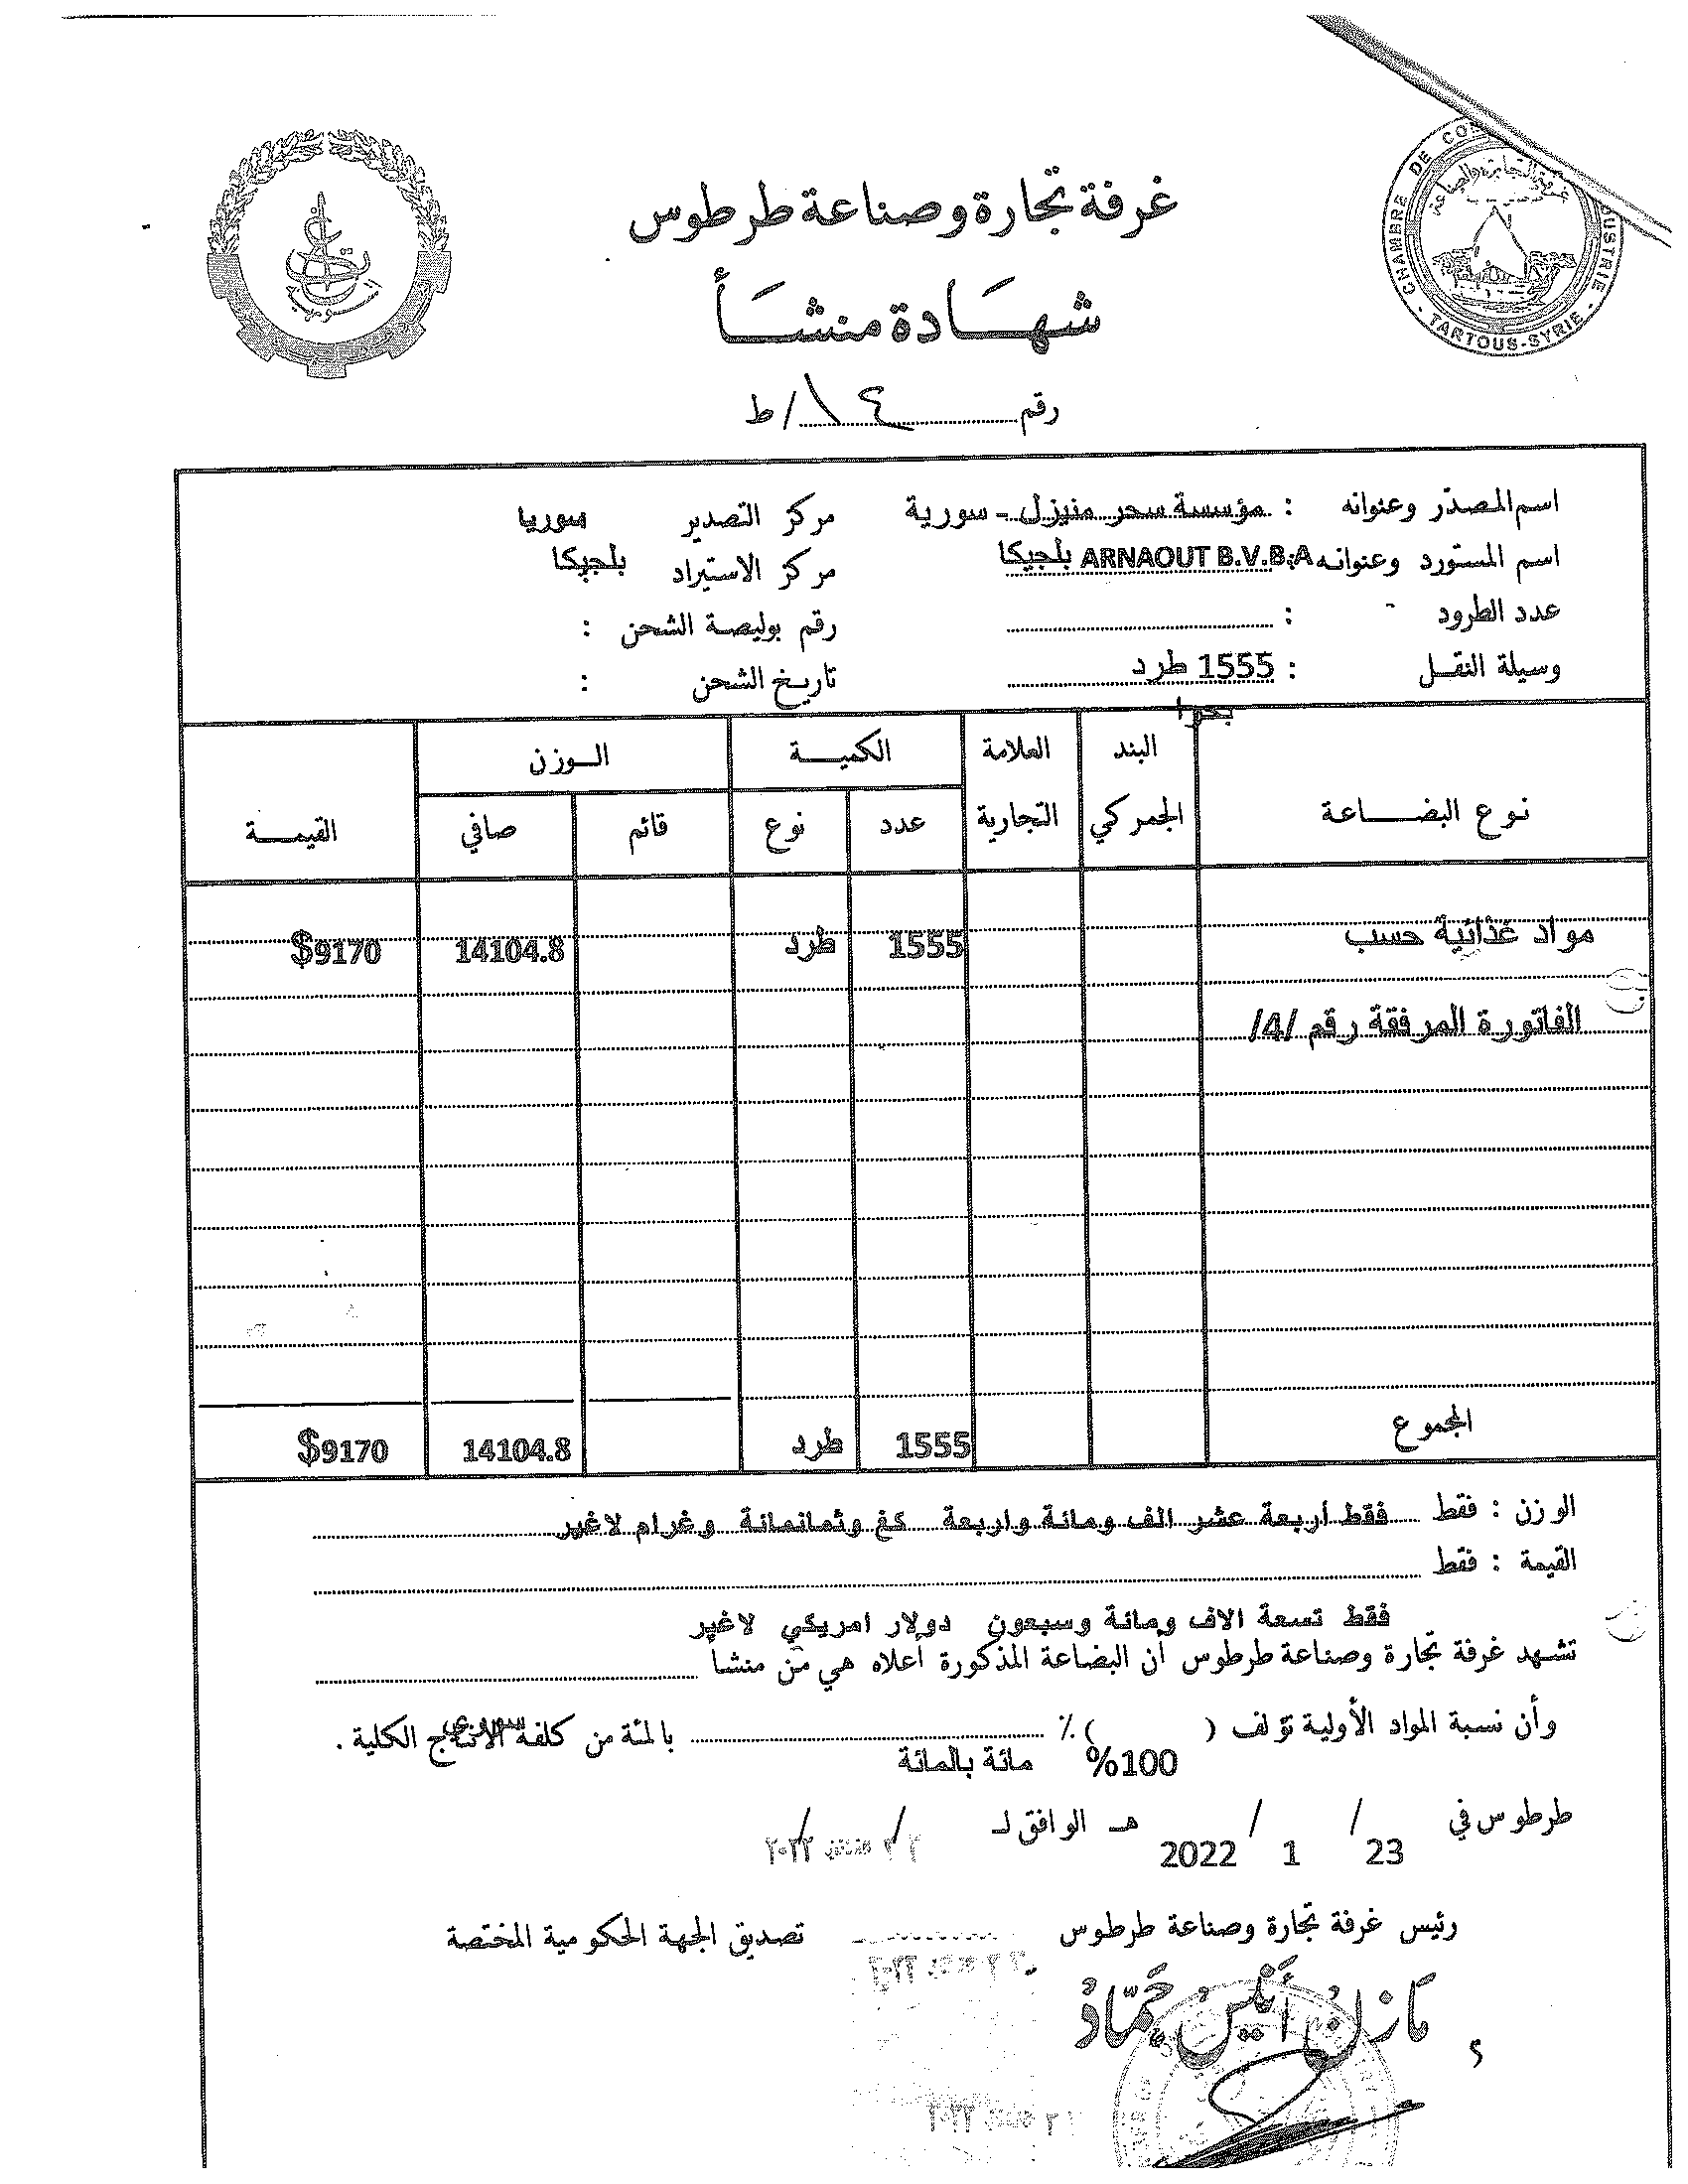 CHAMBRE DE COM
USTRIE - TARTOUS-SYRIE -
غرفة تجارة وصناعة طرطوس
شهادة منشأ
رقم ١٤ / ط
اسم المصدّر وعنوانه : مؤسسة سحر منيزل - سورية مركز التصدير سوريا
اسم المستورد وعنوانه : ARNAOUT B.V.B.A بلجيكا مركز الاستيراد بلجيكا
عدد الطرود : رقم بوليصة الشحن :
وسيلة النقل : 1555 طرد تاريخ الشحن :
بحرا
نوع البضاعة البند الجمركي العلامة التجارية الكمية الوزن القيمة
عدد نوع قائم صافي
مواد غذائية حسب 1555 طرد 14104.8 $9170
الفاتورة المرفقة رقم /4/
المجموع 1555 طرد 14104.8 $9170
الوزن : فقط فقط اربعة عشر الف ومائة واربعة كغ وثمانمائة وغرام لاغير
القيمة : فقط
فقط تسعة الاف ومائة وسبعون دولار امريكي لاغير
تشهد غرفة تجارة وصناعة طرطوس أن البضاعة المذكورة أعلاه هي من منشأ
سوري
وأن نسبة المواد الأولية تؤلف ( ) ٪ بالمئة من كلفة الانتاج الكلية .
%100 مائة بالمائة
طرطوس في / / هـ الوافق لـ / /
23 1 2022
رئيس غرفة تجارة وصناعة طرطوس تصديق الجهة الحكومية المختصة
مازن أنيس حماد